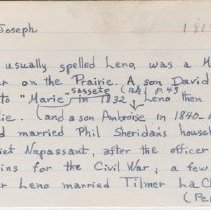 Joseph 181
usually spelled Leno, was a M
er on the Prairie. A son David
Sassete (Bk) p. 43
to "Marie" in 1832. Leno then
ie. (and a son Ambroise in 1840-
d married Phil Sheridan's househ
iet Napassant, after the officer
ins for the Civil War; a few
r Leno married Tilmer LaCh
(Fe